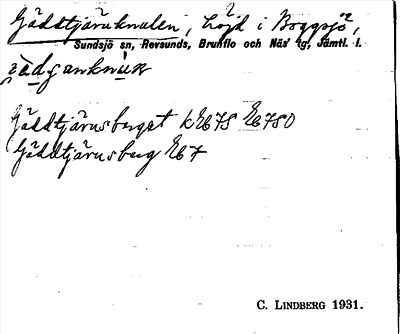 Gäddtjärnknulen, höjd i Boggsjö,
Sundsjö sn, Revsunds, Brunflo och Näs tg, Jämtl. l.
Gäddtjärnsberget kEK78 EK78O
Gäddtjärnsberg EK7
C. LINDBERG 1931.